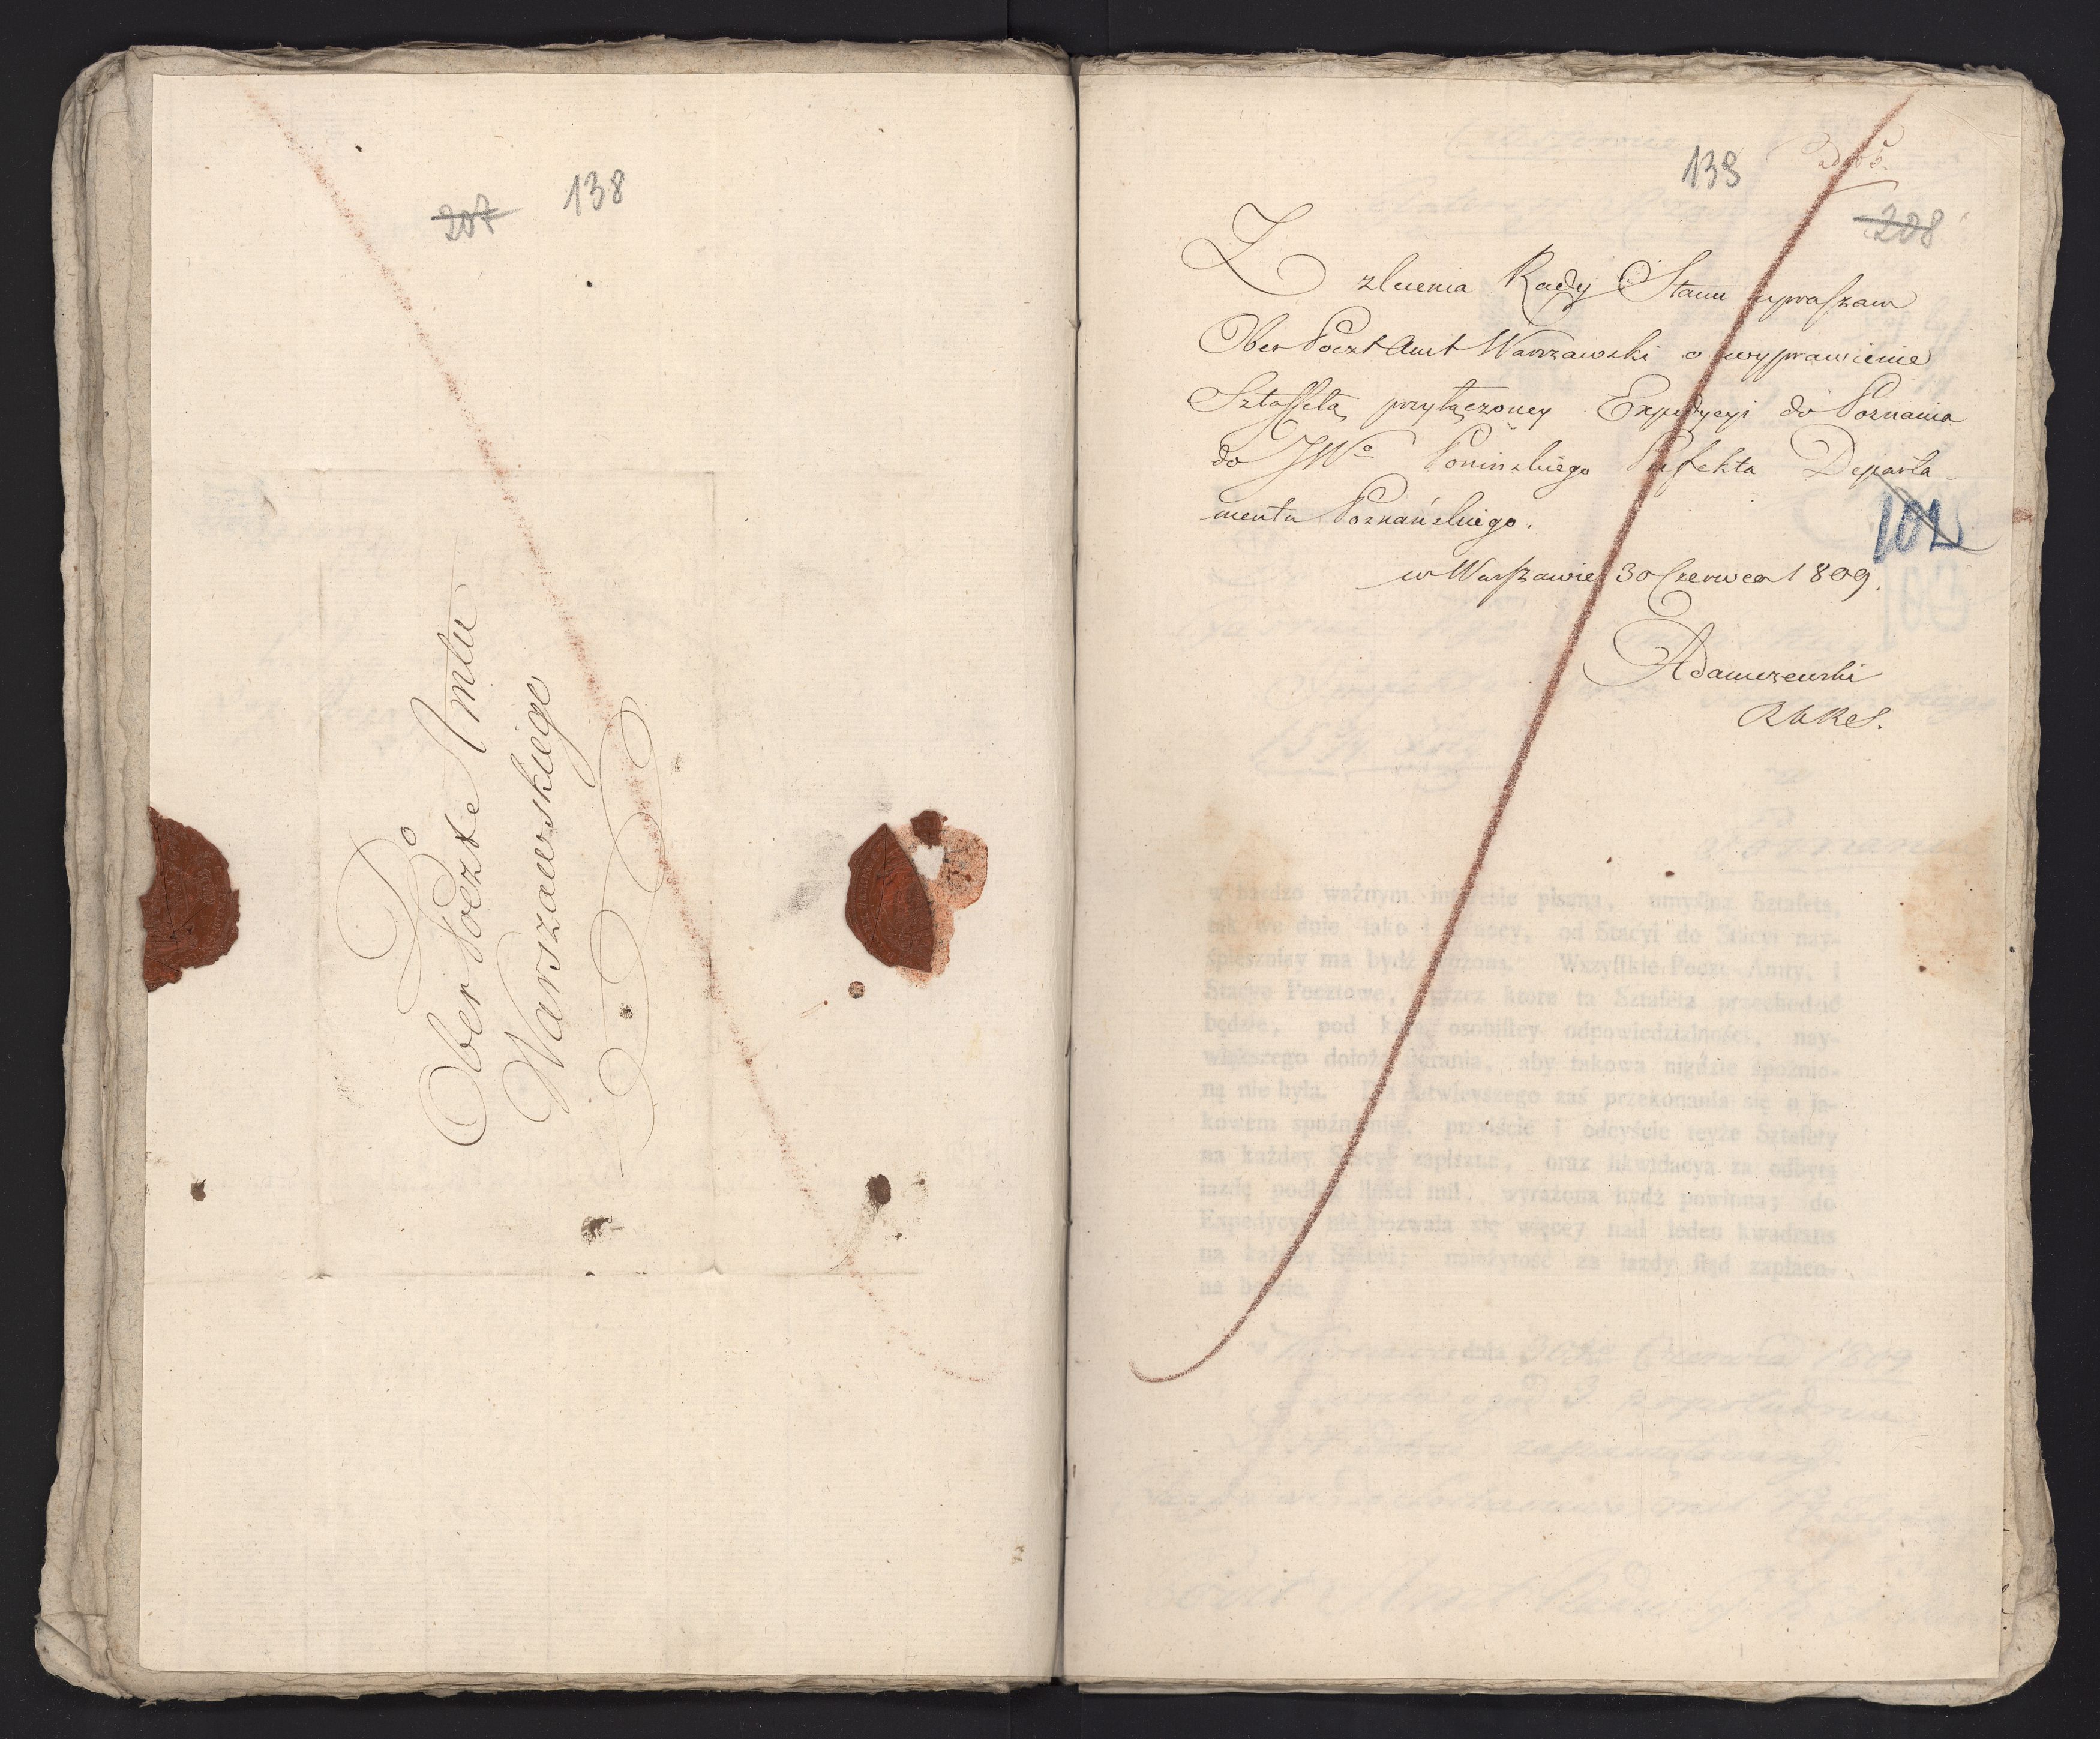 207 138
Do
Ober Poczt Amtu
Warszawskiego
139
208
Z zlecenia Rady Stanu upraszam
Ober Poczt Amt Warszawski o wyprawienie
Sztaffetą przyłączoney Expedycyi do Poznania
do JWo Ponińskiego Prefekta Departa
mentu Poznańskiego.
102
w Warszawie 30 Czerwca 1809.
Adamczewski
w bardzo ważnym interesie pisana, umyślna Sztafeta,
tak we dnie iako i w nocy, od Stacyi do Stacyi nay-
śpieszniey ma bydź wieziona. Wszystkie Poczt-Amty, i
Stacye Pocztowe, przez ktore ta Sztafeta przechodzić
będzie, pod karą osobistey odpowiedzialności, nay-
większego dołożą starania, aby takowa nigdzie spoźnio-
ną nie była. Dla łatwieyszego zaś przekonania się o ia-
kowem spoźnieniu, przyiście i odeyście teyże Sztafety
na każdey Stacyi zapisane, oraz likwidacya za odbytą
iazdę podług ilości mil, wyrażona bydź powinna; do
Expedycyi nie pozwala się więcey nad ieden kwadrans
na każdey Stacyi; należytość za iazdy stąd zapłaco-
na będzie.
dnia 30 Czerwca 1809